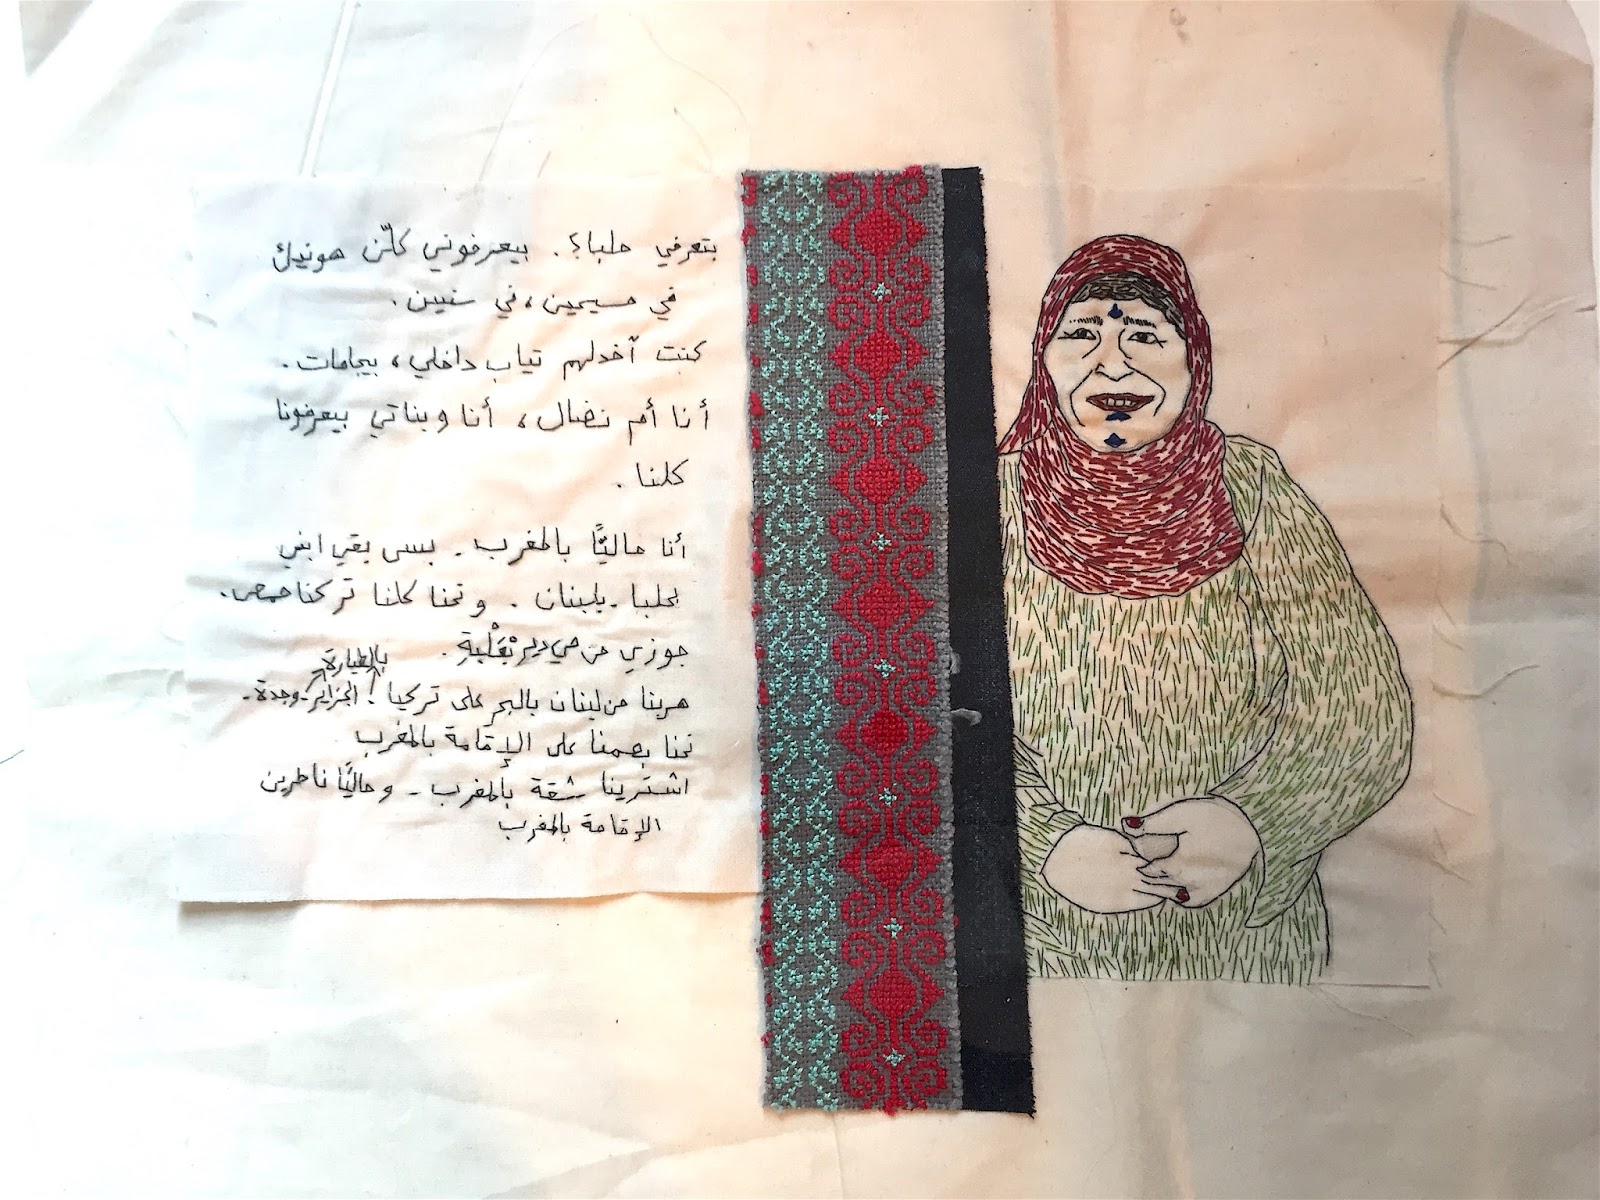 بتعرفي حلبا؟. بيعرفوني كلّن هونيك
في حسيمين، في سنين.
كنت آخدلهم تياب داخلي، بيجامات.
أنا أم نضال، أنا وبناتي بيعرفونا
كلنا.
أنا حاليًّا بالمغرب. بس بقي ابني
بحلبا. بلبنان. ونحنا كلنا تركنا حمص.
جوزي من حي دير بَعْلبة.
بالطيارة
هربنا من لبنان بالبحر على تركيا. الجزائر. وجدة.
نحنا بصمنا على الإقامة بالمغرب
اشترينا شقة بالمغرب. وحاليًّا ناطرين
الإقامة بالمغرب